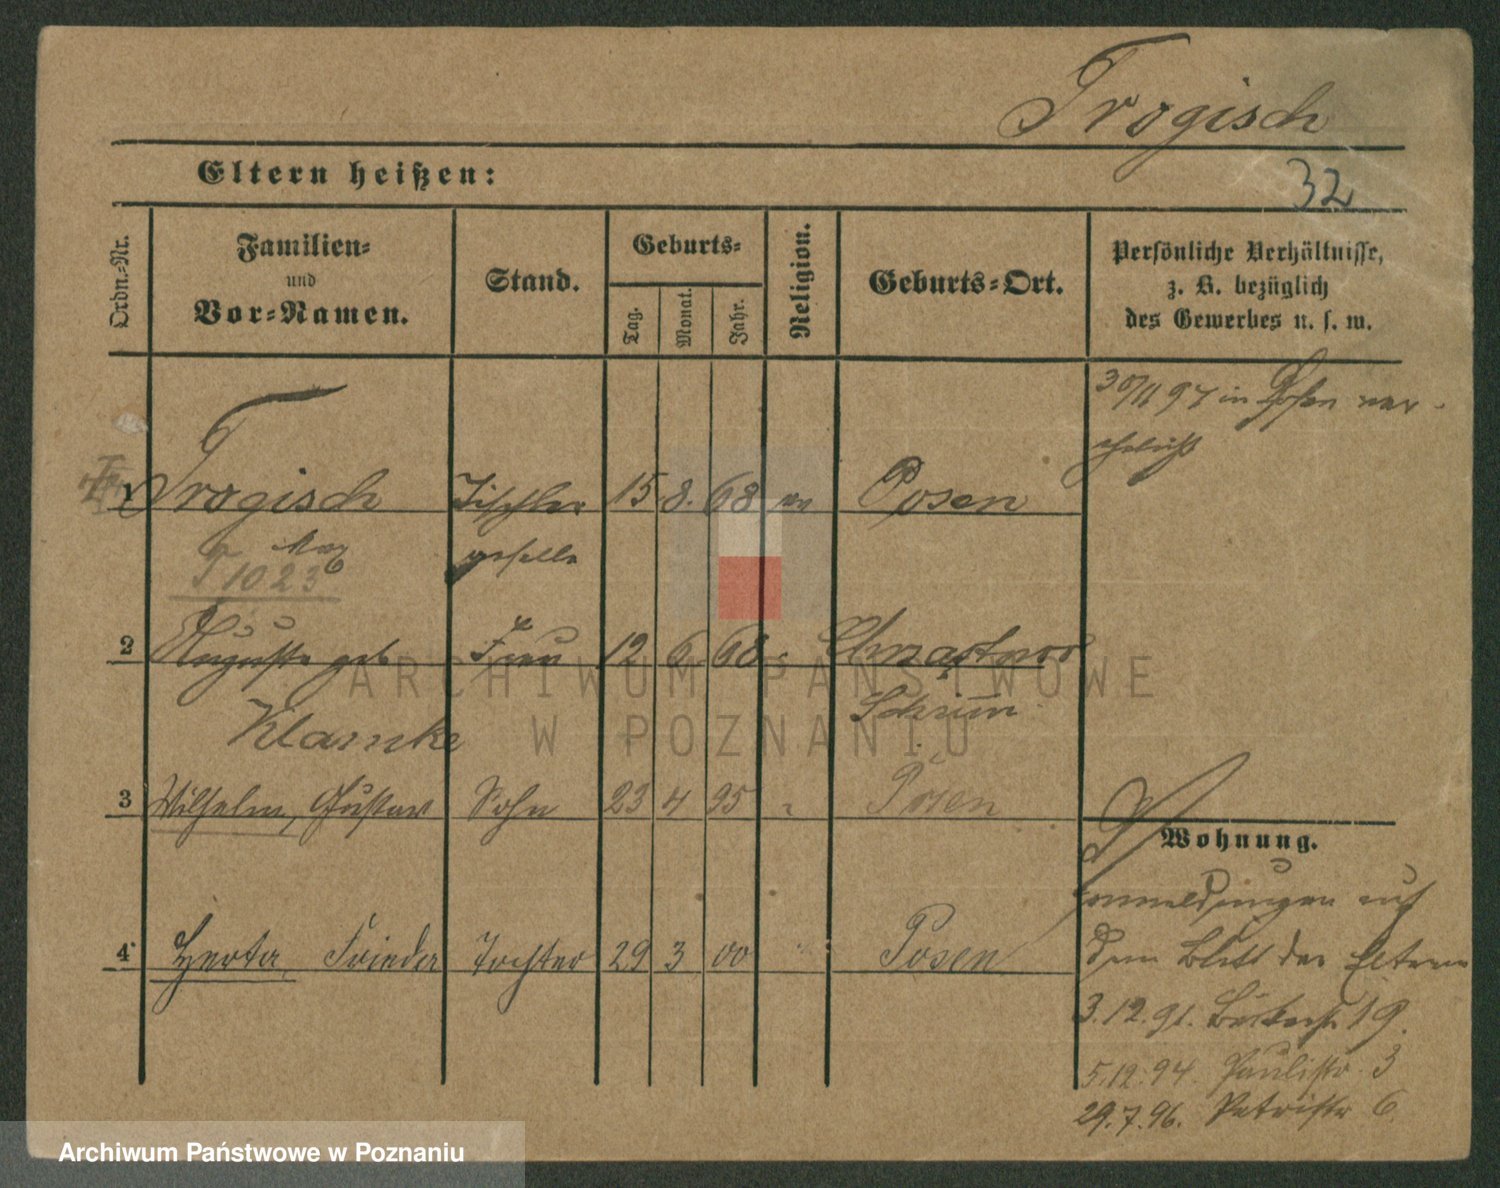 Trogisch
Eltern heißen:
32
Ordn.-Nr.
Familien-
und
Vor-Namen.
Stand.
Geburts-
Tag.
Monat.
Jahr.
Religion.
Geburts-Ort.
Persönliche Verhältnisse,
z. B. bezüglich
des Gewerbes u. s. w.
30/11 97 in Posen ver-
ehelicht
1 Trogisch Tischler 15 8. 68 ev Posen
geselle
T 1023
2 Auguste geb Frau 12 6. 68
Klamke Schrim
3 Wilhelm, Gustav Sohn 23 4 95 Posen
Wohnung.
4 Herta, Frieda Tochter 29 3 00 Posen
auf
dem Blatt der Eltern
3.12.91. 19.
5.12.94. Paulistr. 3
29.7.96. Petristr 6.
ARCHIWUM PAŃSTWOWE
W POZNANIU
Archiwum Państwowe w Poznaniu